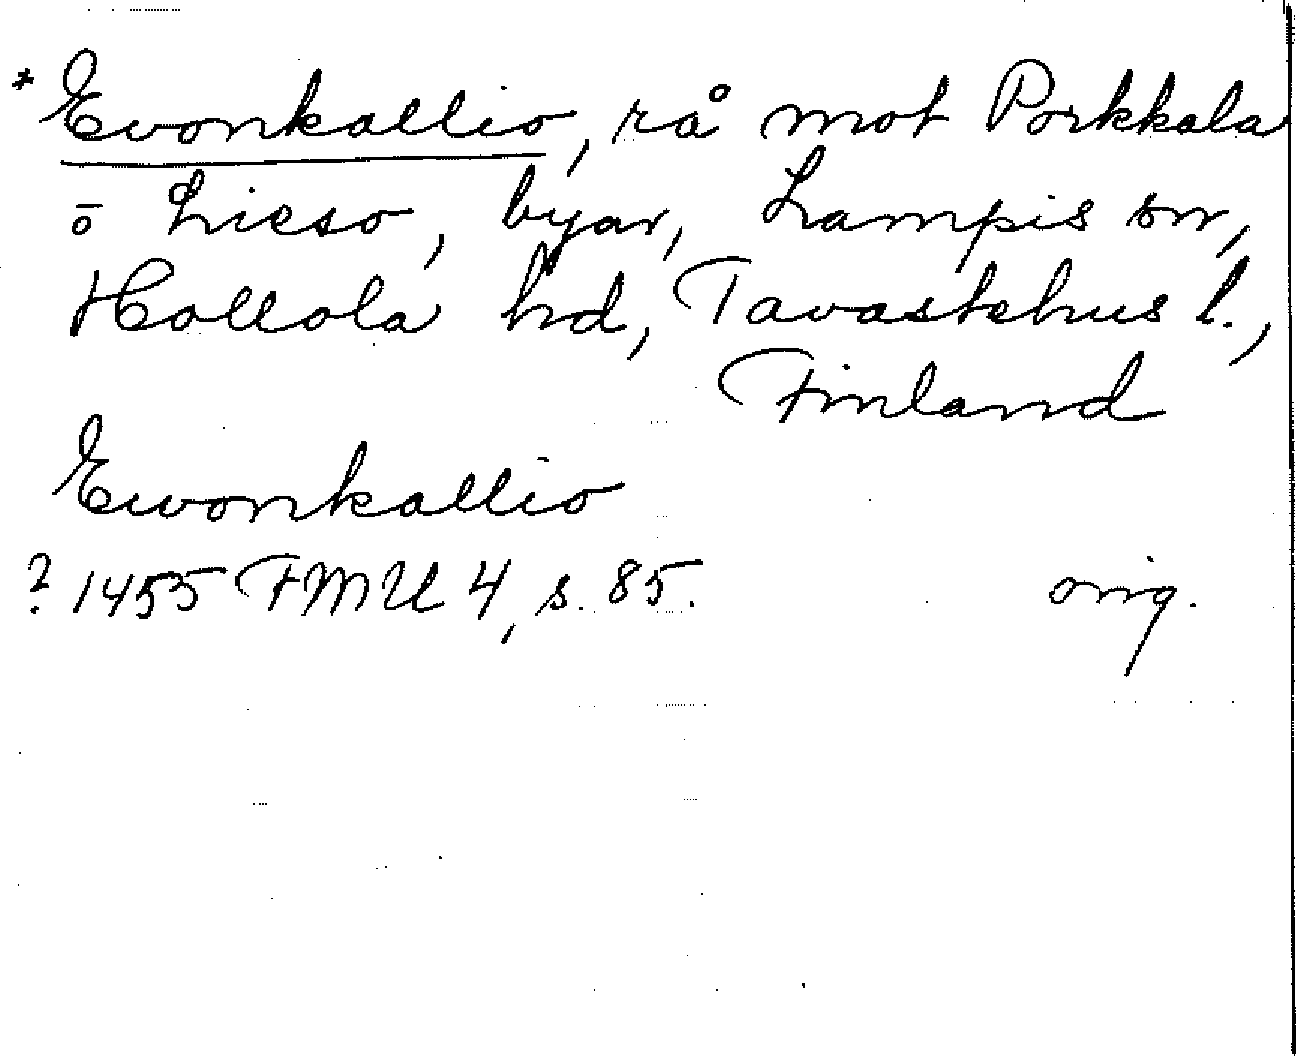 * Evonkallio, rå mot Porkkala
ō Lieso, byar, Lampis sn,
Hollola hd, Tavastehus l.,
Finland
Ewonkallio
? 1455 FMU 4, s. 85. orig.